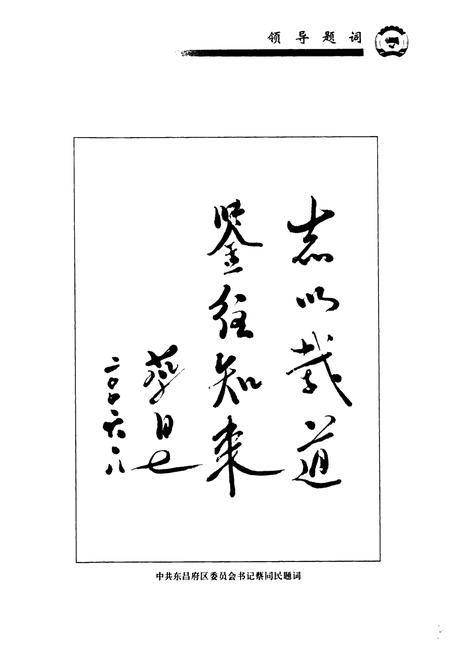 领导题词
志以载道
鉴往知来
蔡同民
二〇〇六.六.八
中共东昌府区委员会书记蔡同民题词